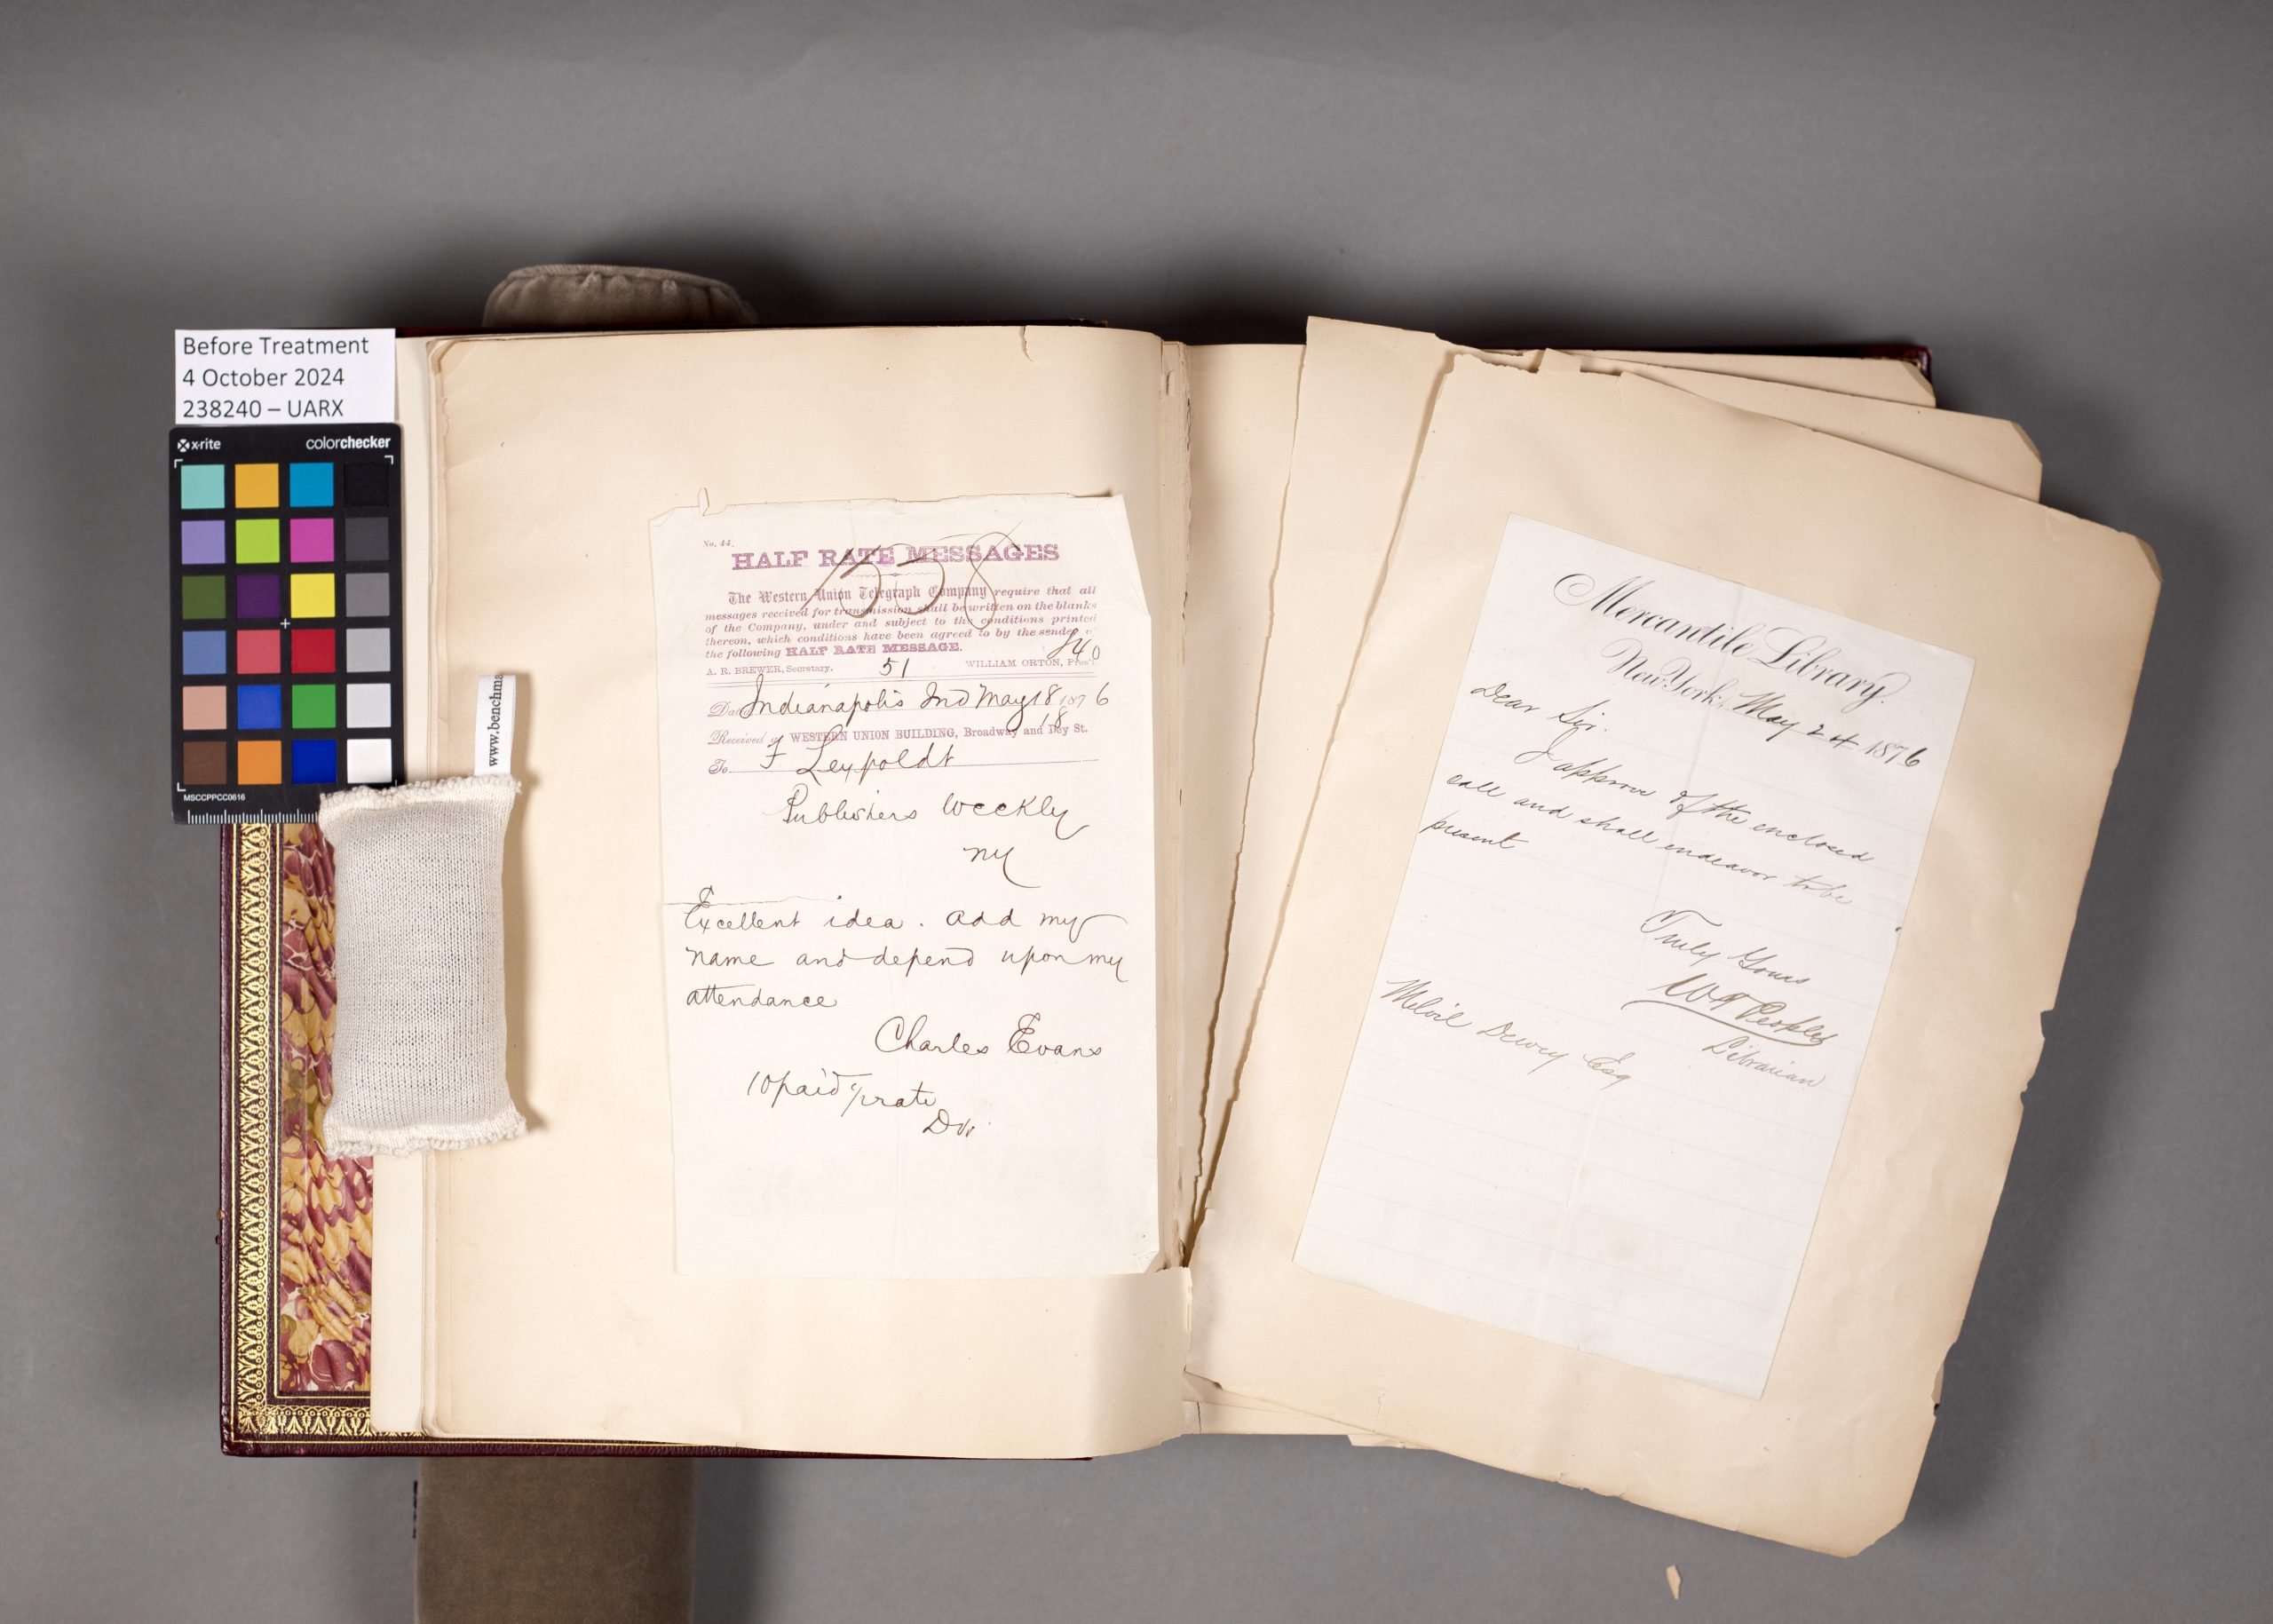 Before Treatment
4 October 2024
238240 – UARX
x-rite colorchecker
MSCCPPCC0616
www.benchma
No. 44.
1558
HALF RATE MESSAGES
The Western Union Telegraph Company require that all
messages received for transmission shall be written on the blanks
of the Company, under and subject to the conditions printed
thereon, which conditions have been agreed to by the sender of
the following HALF RATE MESSAGE.
840
A. R. BREWER, Secretary. 51 WILLIAM ORTON, Pres't
Date Indianapolis Ind May 18 1876
18
Received at WESTERN UNION BUILDING, Broadway and Dey St.
To F Leypoldt
Publishers Weekly
NY
Excellent idea. add my
name and depend upon my
attendance
Charles Evans
10 paid ½ rate
Mercantile Library.
New York, May 24 1876
Dear Sir.
I approve of the enclosed
call and shall endeavor to be
present
Truly Yours
W T Peoples
Librarian
Melvil Dewey Esq